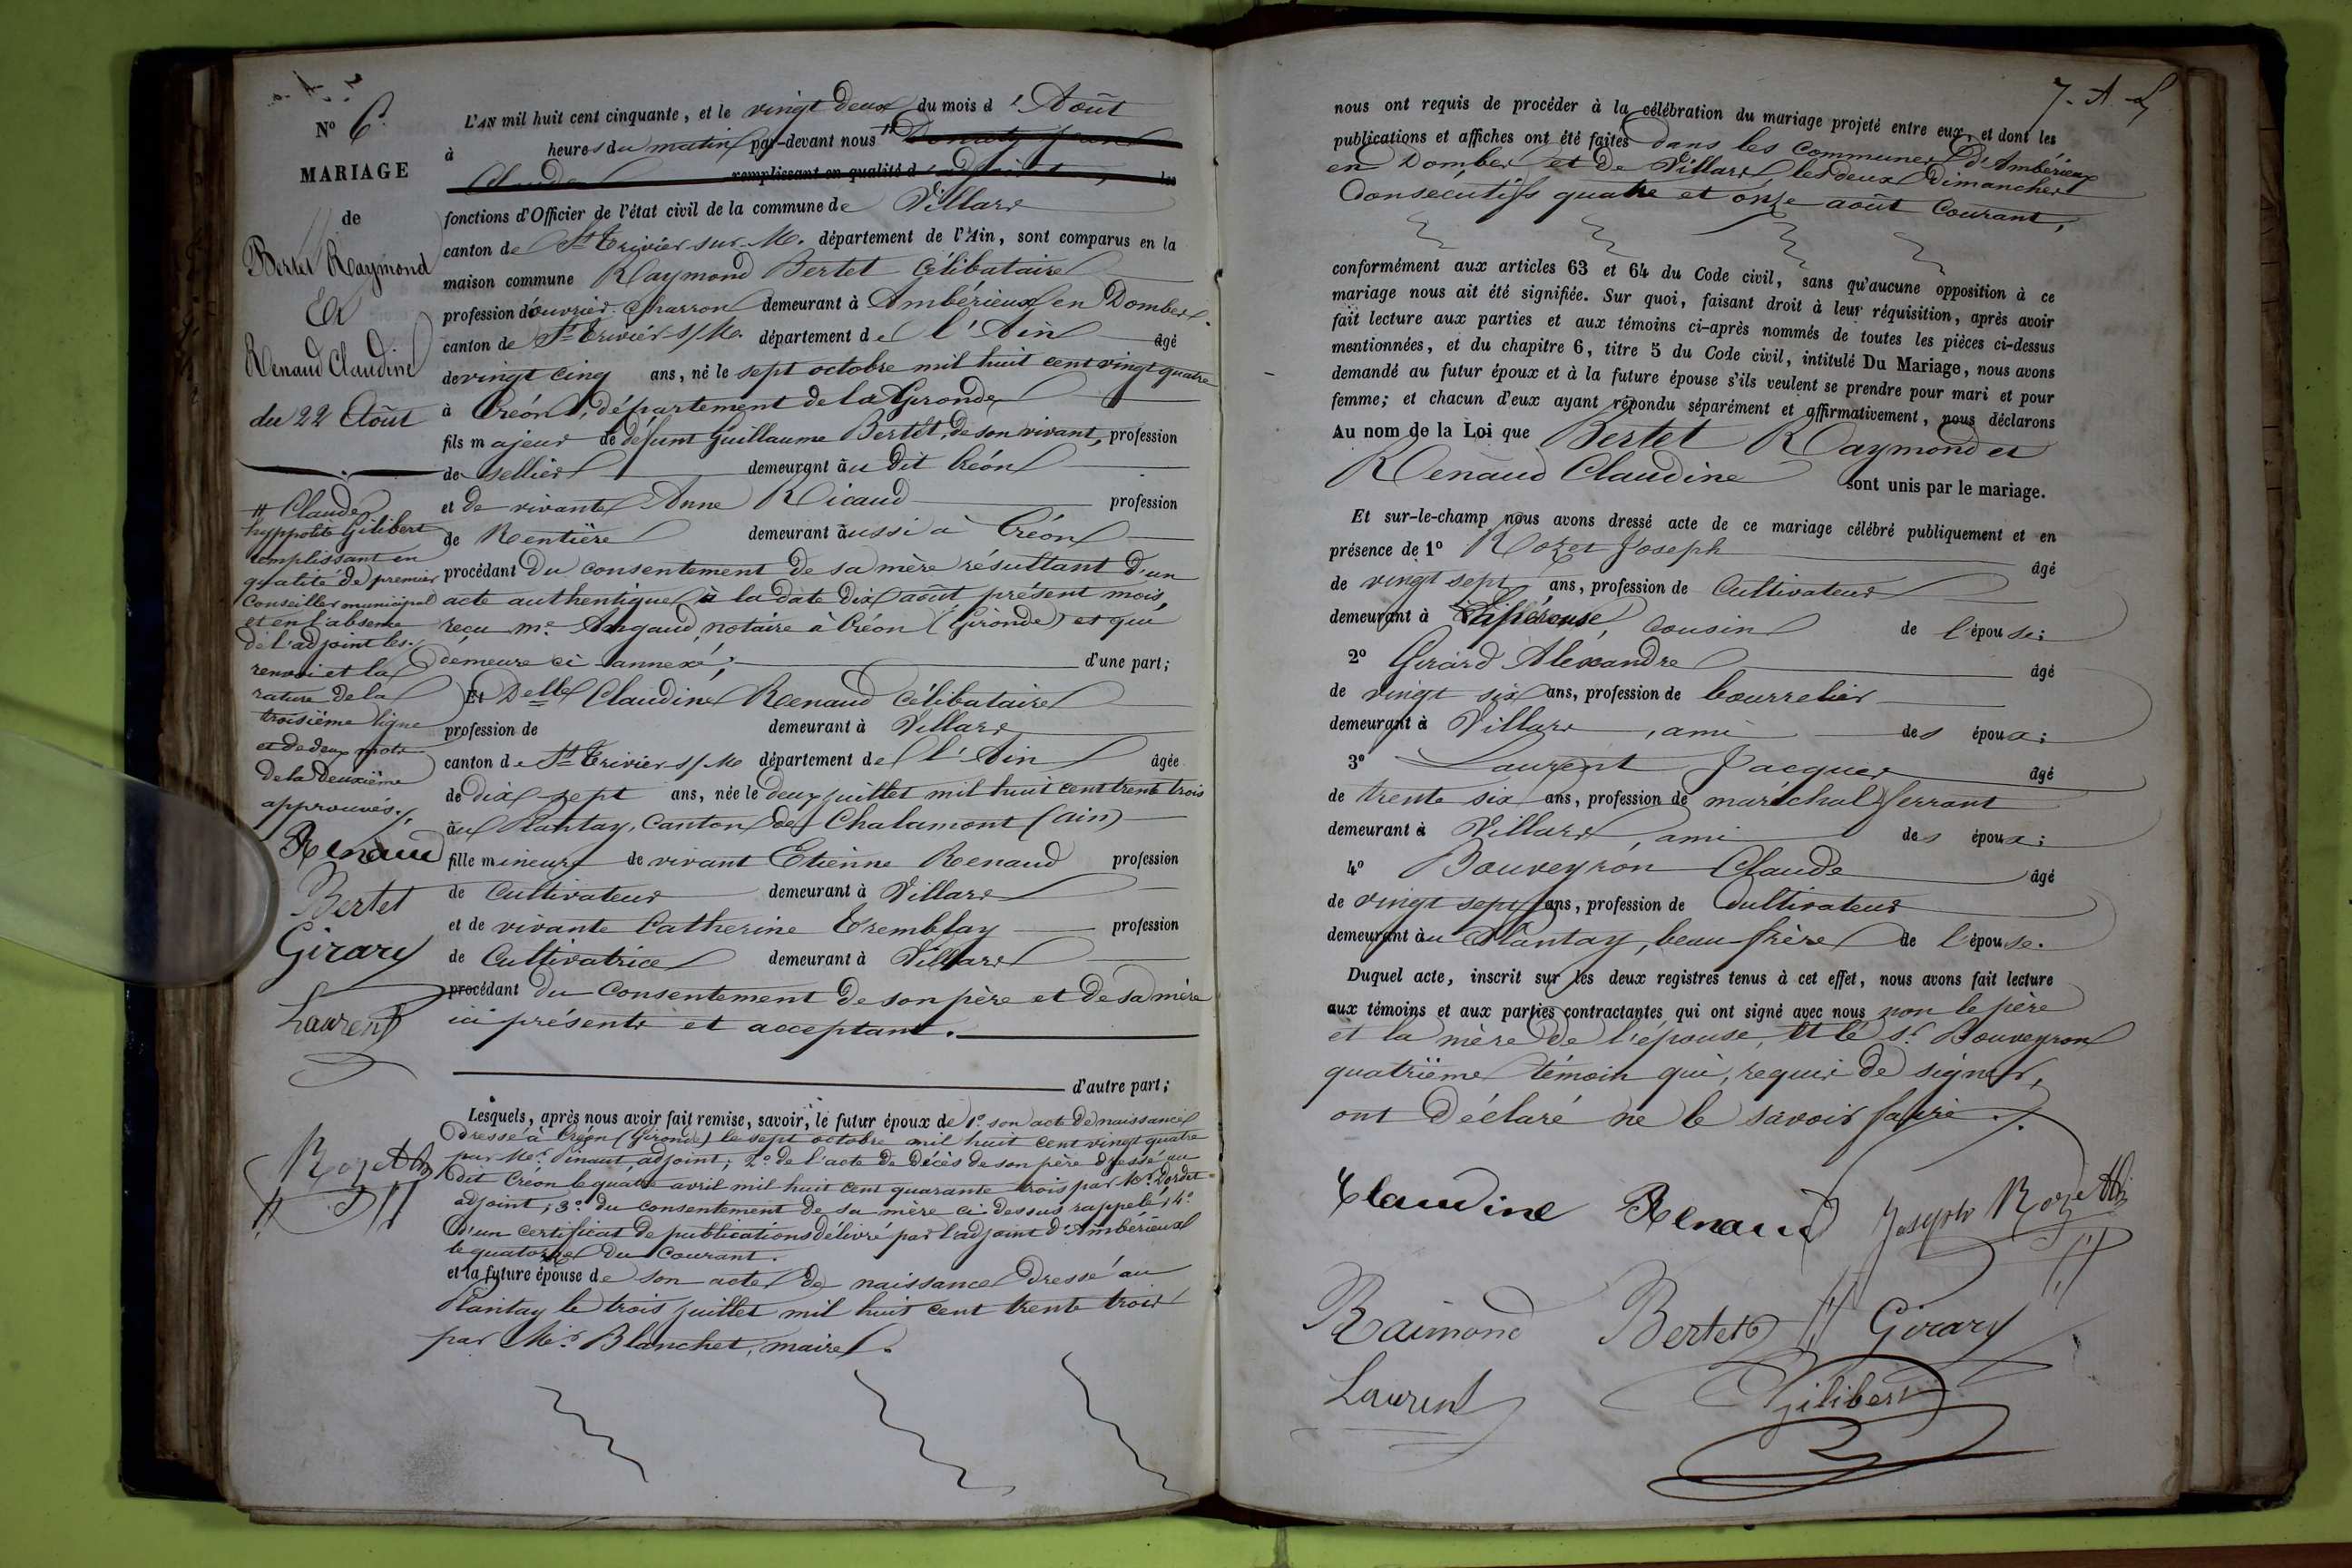 N° 6.
MARIAGE
de
Bertet Raymond
Et
Renaud Claudine
du 22 Août
# Claude
hyppolite Gilibert
remplissant en
qualité de premier
Conseiller municipal
et en l'absence
de l'adjoint les./
renvoi et la
rature de la
troisième ligne
et de deux mots
de la deuxième
approuvés./.
Renaud
Bertet
Girard
Laurent
Rozet
L'AN mil huit cent cinquante, et le vingt deux du mois d'Août
à heures du matin par-devant nous #
Claude remplissant en qualité d' adjoint, les
fonctions d'Officier de l'état civil de la commune de Villars
canton de St Trivier-sur-M. département de l'Ain, sont comparus en la
maison commune Raymond Bertet Célibataire
profession d'ouvrier charron demeurant à Ambérieux en Dombes.
canton de St Trivier s/M. département de l'Ain âgé
de vingt cinq ans, né le sept octobre mil huit cent vingt quatre
à Créon, département de la Gironde
fils majeur de défunt Guillaume Bertet, de son vivant, profession
de sellier demeurant au dit Créon
et de vivante Anne Ricaud profession
de Rentière demeurant aussi à Créon
procédant du consentement de sa mère résultant d'un
acte authentique à la date dix août présent mois,
reçu me. Argaud, notaire à Créon (Gironde) et qui
demeure ci-annexé; d'une part;
Et Delle Claudine Renaud Célibataire
profession de demeurant à Villars
canton de St Trivier s/M. département de l'Ain âgée
de dix-sept ans, née le deux juillet mil huit cent trente trois
au Plantay, Canton de Chalamont (Ain)
fille mineure de vivant Etienne Renaud profession
de Cultivateur demeurant à Villars
et de vivante Catherine Tremblay profession
de Cultivatrice demeurant à Villars
procédant du Consentement de son père et de sa mère
ici présents et acceptant.
d'autre part;
Lesquels, après nous avoir fait remise, savoir, le futur époux de 1° son acte de naissance
dressé à Créon (Gironde) le sept octobre mil huit cent vingt quatre
par Mr. Pinaut, adjoint; 2° de l'acte de décès de son père dressé au
dit Créon le quatre avril mil huit cent quarante trois par Mr. Dordet
adjoint; 3° du consentement de sa mère ci-dessus rappelé; 4°
d'un certificat de publications délivré par l'adjoint d'Ambérieux
le quatorze du Courant.
et la future épouse de son acte de naissance dressé au
Plantay le trois juillet mil huit cent trente trois
par Mr. Blanchet, maire.
nous ont requis de procéder à la célébration du mariage projeté entre eux, et dont les
publications et affiches ont été faites dans les Communes d'Ambérieux
en Dombes et de Villars, les deux Dimanches
Consécutifs quatre et onze août Courant,
conformément aux articles 63 et 64 du Code civil, sans qu'aucune opposition à ce
mariage nous ait été signifiée. Sur quoi, faisant droit à leur réquisition, après avoir
fait lecture aux parties et aux témoins ci-après nommés de toutes les pièces ci-dessus
mentionnées, et du chapitre 6, titre 5 du Code civil, intitulé Du Mariage, nous avons
demandé au futur époux et à la future épouse s'ils veulent se prendre pour mari et pour
femme; et chacun d'eux ayant répondu séparément et affirmativement, nous déclarons
Au nom de la Loi que Bertet Raymond et
Renaud Claudine sont unis par le mariage.
Et sur-le-champ nous avons dressé acte de ce mariage célébré publiquement et en
présence de 1° Rozet Joseph âgé
de vingt sept ans, profession de Cultivateur
demeurant à cousin de l'épouse;
2° Girard Alexandre âgé
de vingt six ans, profession de bourrelier
demeurant à Villars, ami des époux;
3° Laurent Jacques âgé
de trente six ans, profession de maréchal ferrant
demeurant à Villars, ami des époux;
4° Bouveyron Claude âgé
de vingt sept ans, profession de Cultivateur
demeurant au Plantay, beau-frère de l'épouse.
Duquel acte, inscrit sur les deux registres tenus à cet effet, nous avons fait lecture
aux témoins et aux parties contractantes qui ont signé avec nous non le père
et la mère de l'épouse, et le sr. Bouveyron
quatrième témoin qui, requis de signer,
ont déclaré ne le savoir faire./.
Claudine Renaud Joseph Rozet
Raimond Bertet Girard
Laurent Gilibert